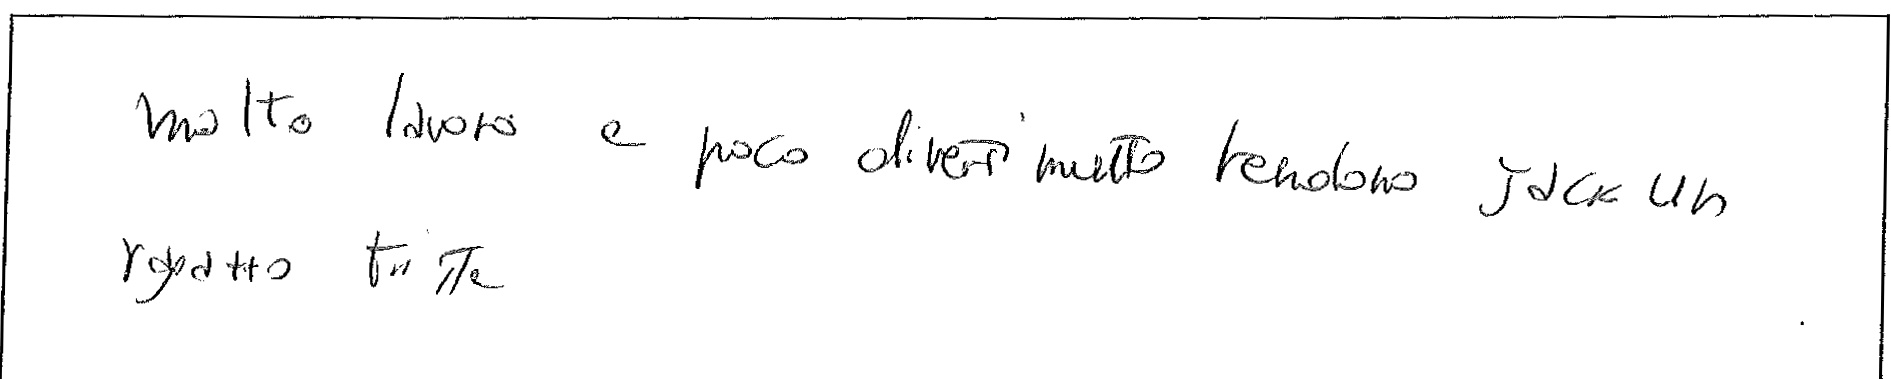 molto lavoro e poco divertimento rendono Jack un
ragazzo triste